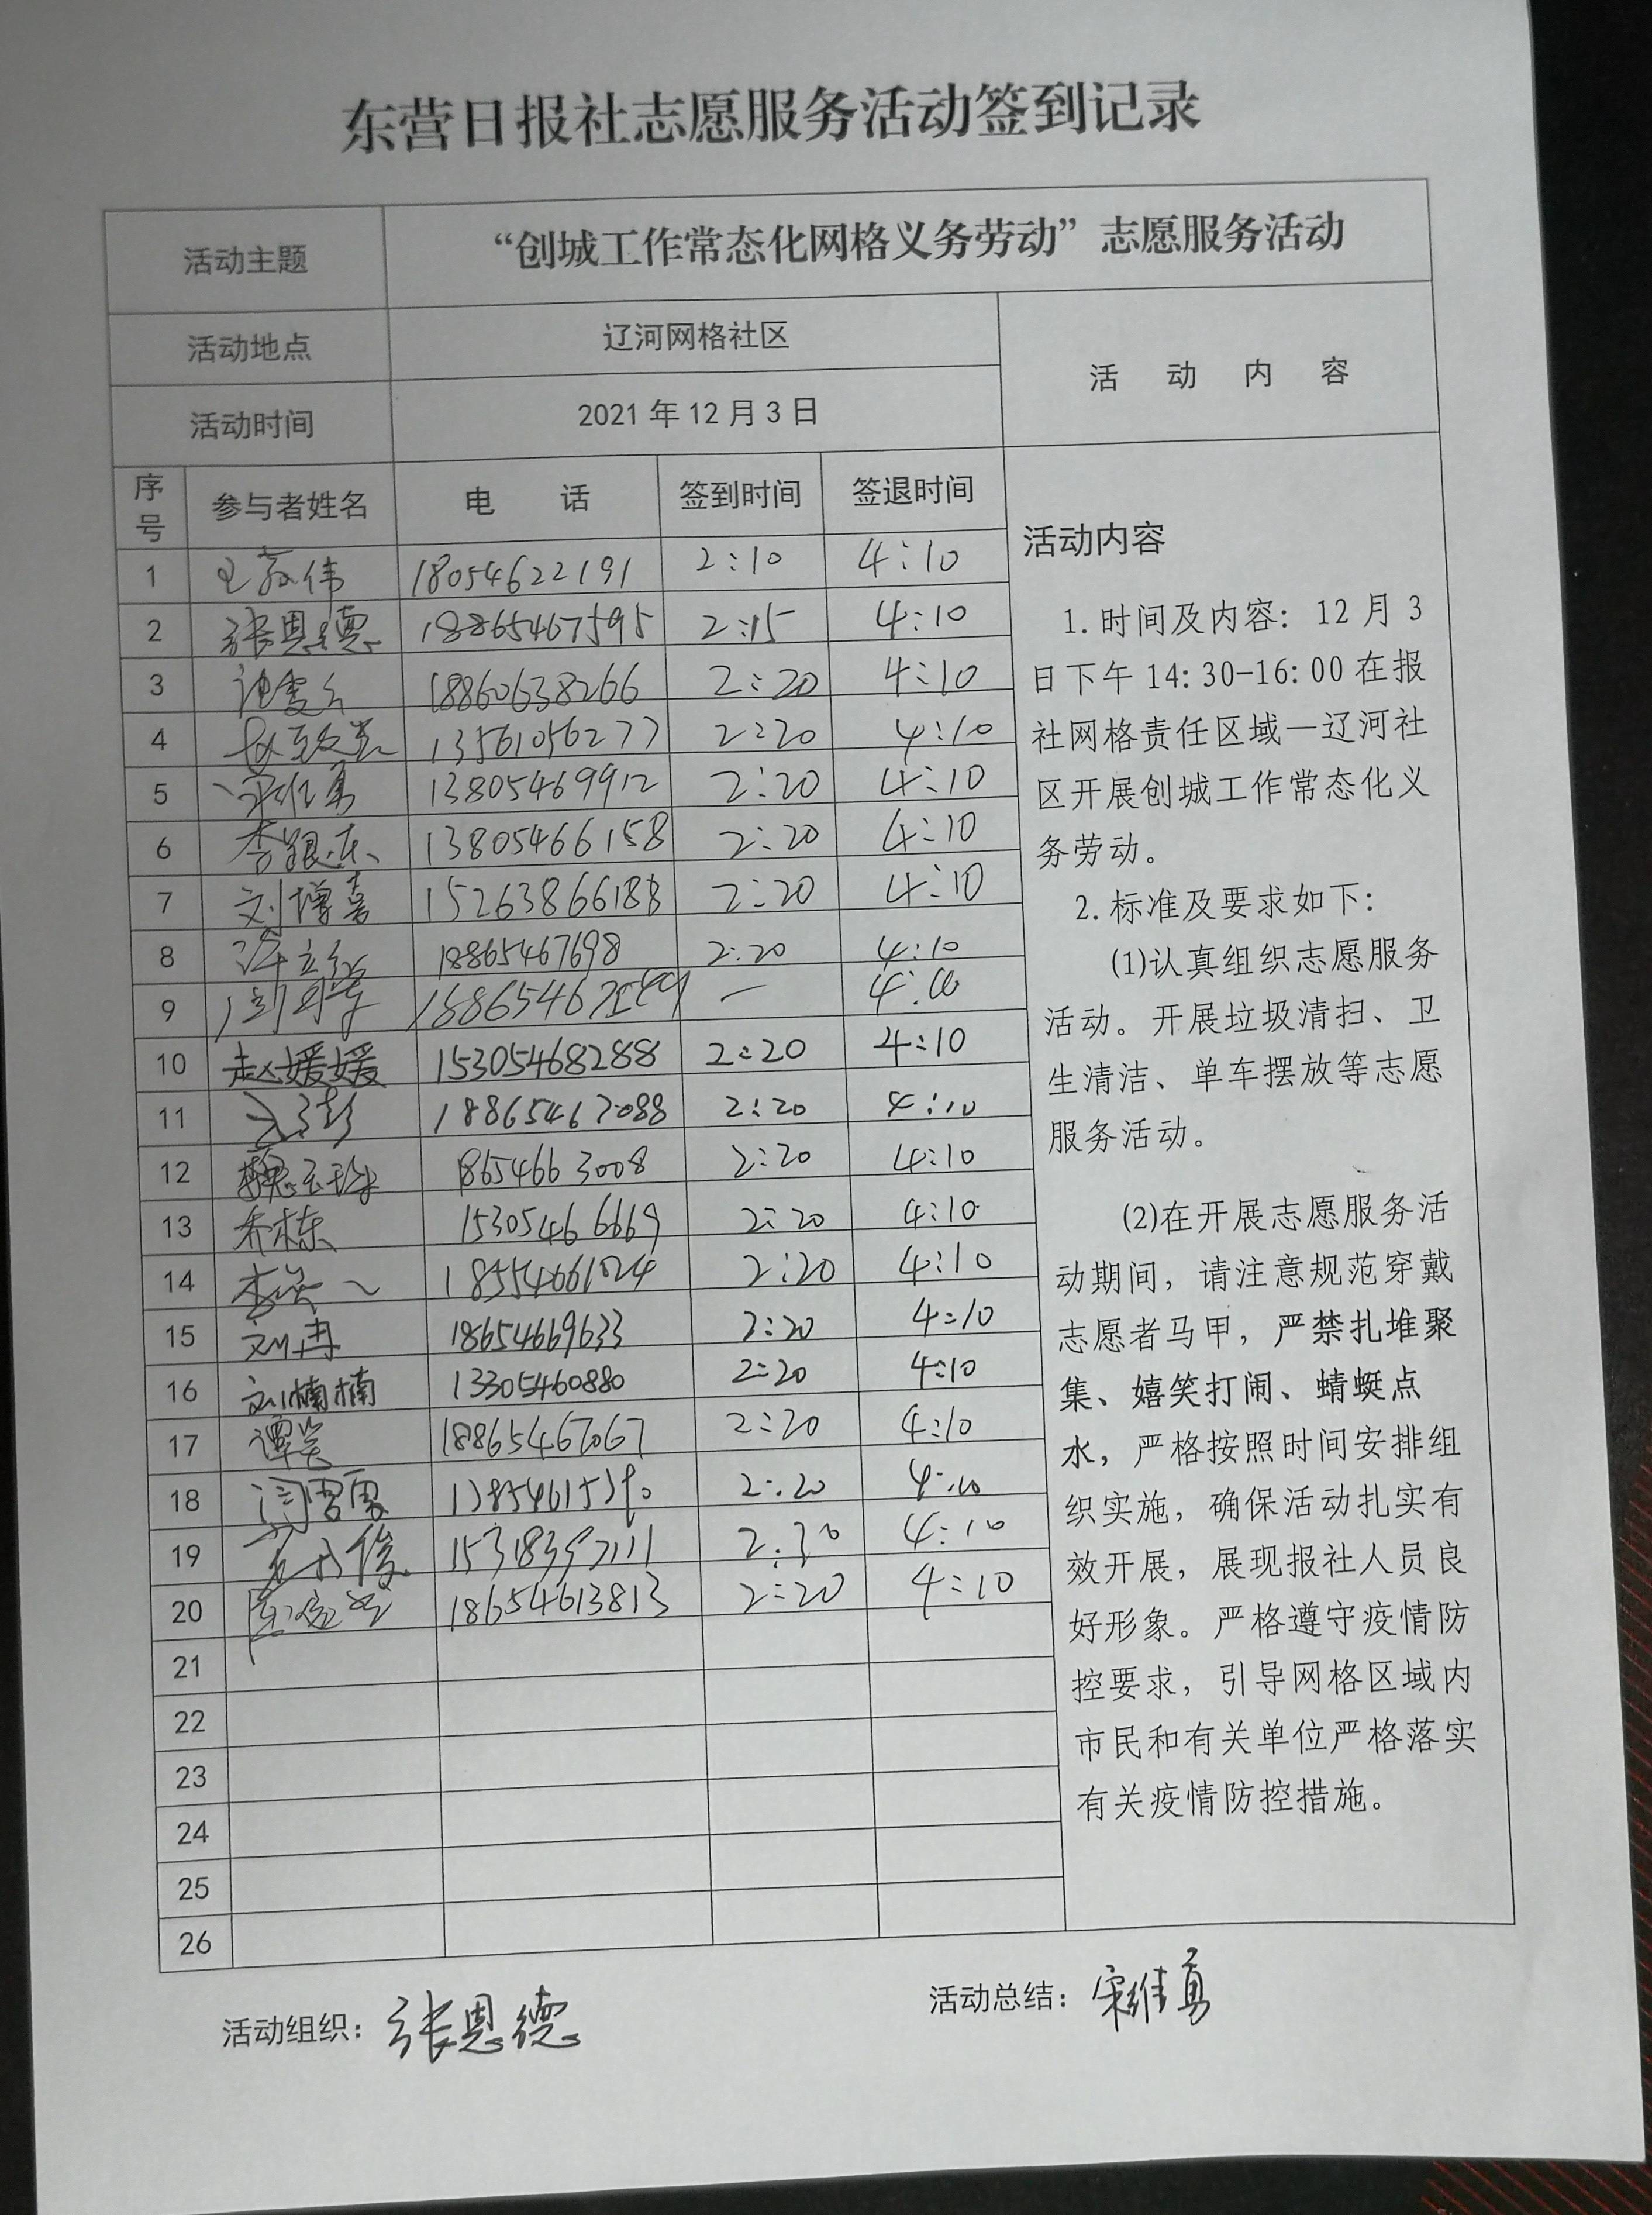 东营日报社志愿服务活动签到记录
活动主题 “创城工作常态化网格义务劳动”志愿服务活动
活动地点 辽河网格社区
活动时间 2021年12月3日
活 动 内 容
序号 参与者姓名 电 话 签到时间 签退时间
1 18054622191 2:10 4:10
2 张恩德 18865467595 2:15 4:10
3 18860638266 2:20 4:10
4 13561056277 2:20 4:10
5 宋维勇 13805469912 2:20 4:10
6 李银东 13805466158 2:20 4:10
7 刘增喜 15263866188 2:20 4:10
8 18865467698 2:20 4:10
9 —
10 赵媛媛 15305468288 2:20 4:10
11 18865467088 2:20 4:10
12 魏玉珍 18654663008 2:20 4:10
13 乔栋 15305466669 2:20 4:10
14 2:20 4:10
15 刘冉 18654669633 2:20 4:10
16 刘楠楠 13305460880 2:20 4:10
17 18865467067 2:20 4:10
18 闫雪 2:20 4:10
19 4:10
20 18654613813 2:20 4:10
21
22
23
24
25
26
活动内容
1.时间及内容：12月3
日下午14:30-16:00在报
社网格责任区域—辽河社
区开展创城工作常态化义
务劳动。
2.标准及要求如下：
(1)认真组织志愿服务
活动。开展垃圾清扫、卫
生清洁、单车摆放等志愿
服务活动。
(2)在开展志愿服务活
动期间，请注意规范穿戴
志愿者马甲，严禁扎堆聚
集、嬉笑打闹、蜻蜓点
水，严格按照时间安排组
织实施，确保活动扎实有
效开展，展现报社人员良
好形象。严格遵守疫情防
控要求，引导网格区域内
市民和有关单位严格落实
有关疫情防控措施。
活动组织：张恩德
活动总结：宋维勇